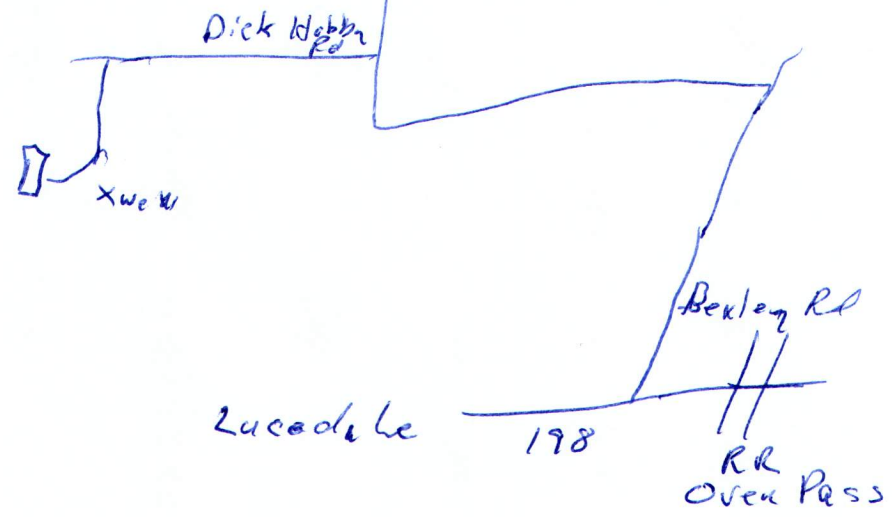 Dick Hobby
Rd
X well
Bexley Rd
Lucedale
198
RR
Over Pass